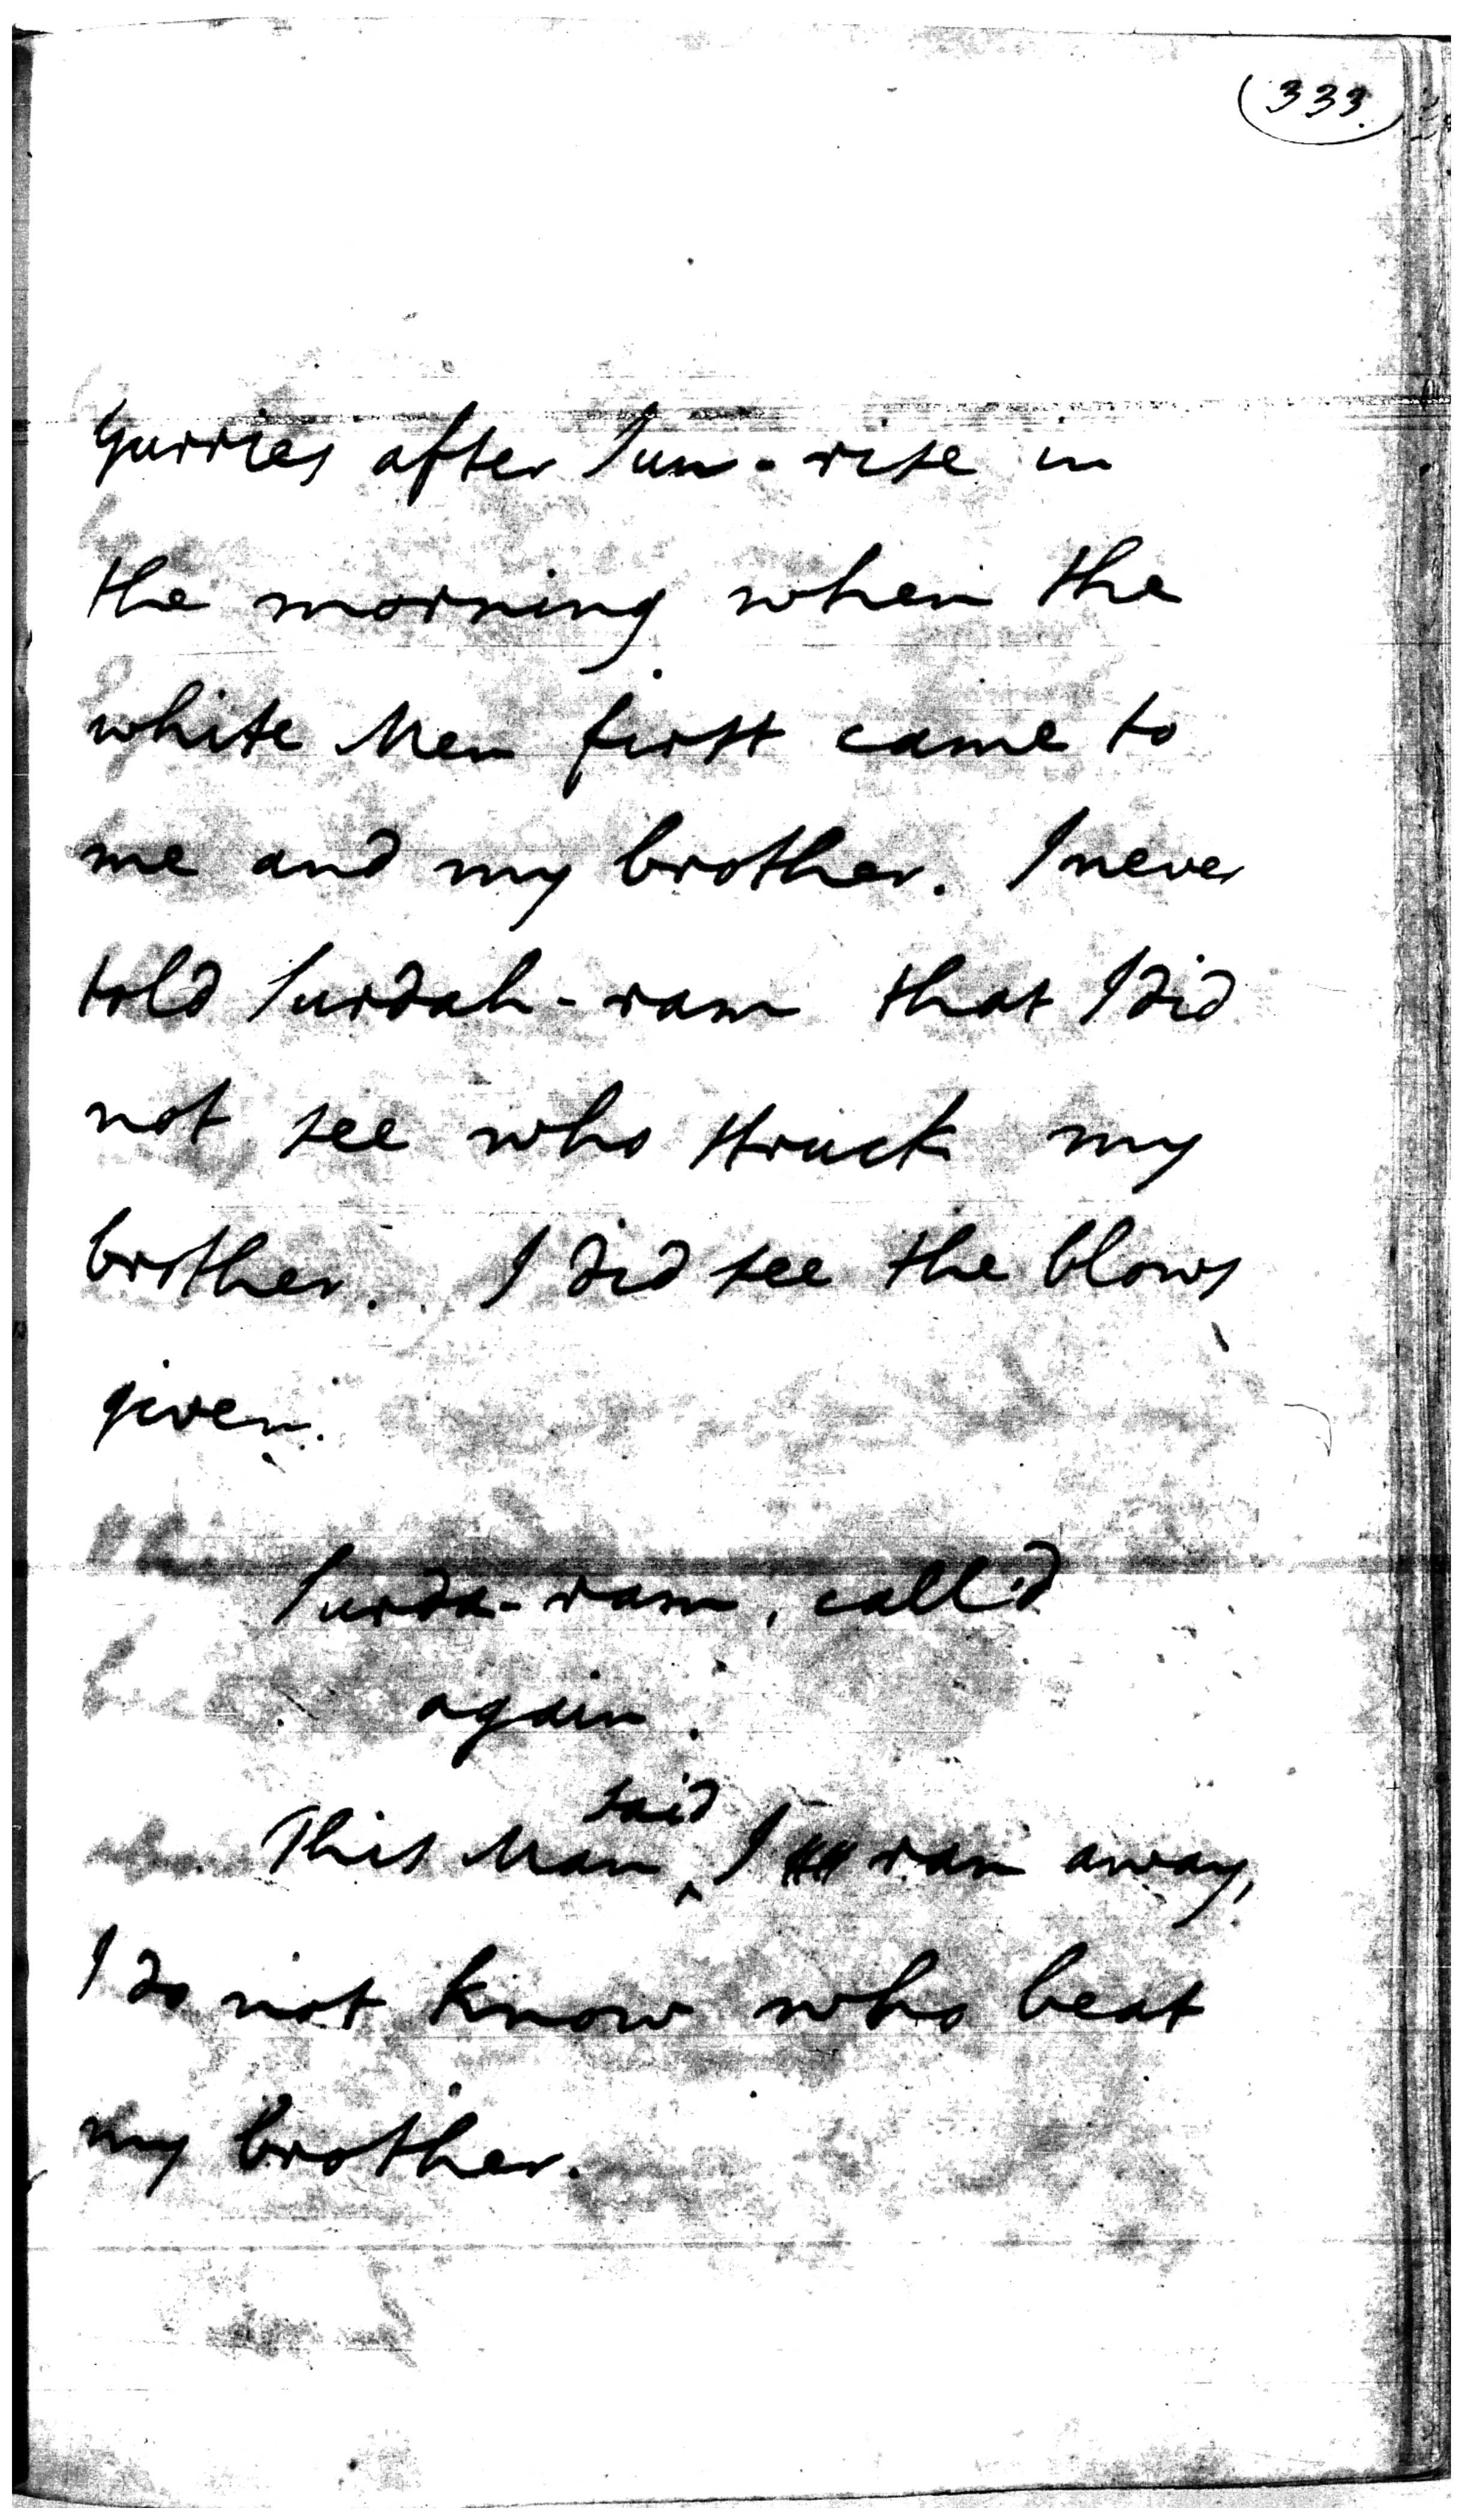 333.
Gurries after Sun-rise in
the morning when the
white Men first came to
me and my brother. I never
told Surdah-ram that I did
not see who struck my
brother. I did see the blows
given.
Surda-ram, call'd
again.
said
This Man ^ I ran away,
I do not know who beat
my brother.